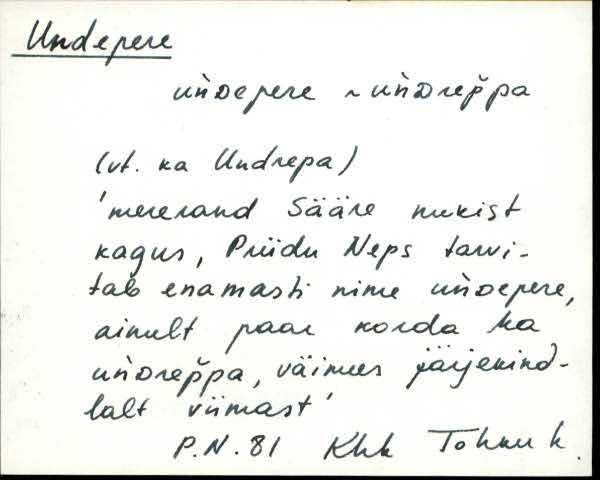 Undepere
uǹDepere ~ uǹDrep̌pa
(vt. ka Undrepa)
'mererand Sääre nukist
kagus, Priidu Neps tarvi-
tab enamasti nime uǹDepere,
ainult paar korda ka
uǹDrep̌pa, väimees järjekind-
lalt viimast'
P.N. 81 Khk Tohku k.